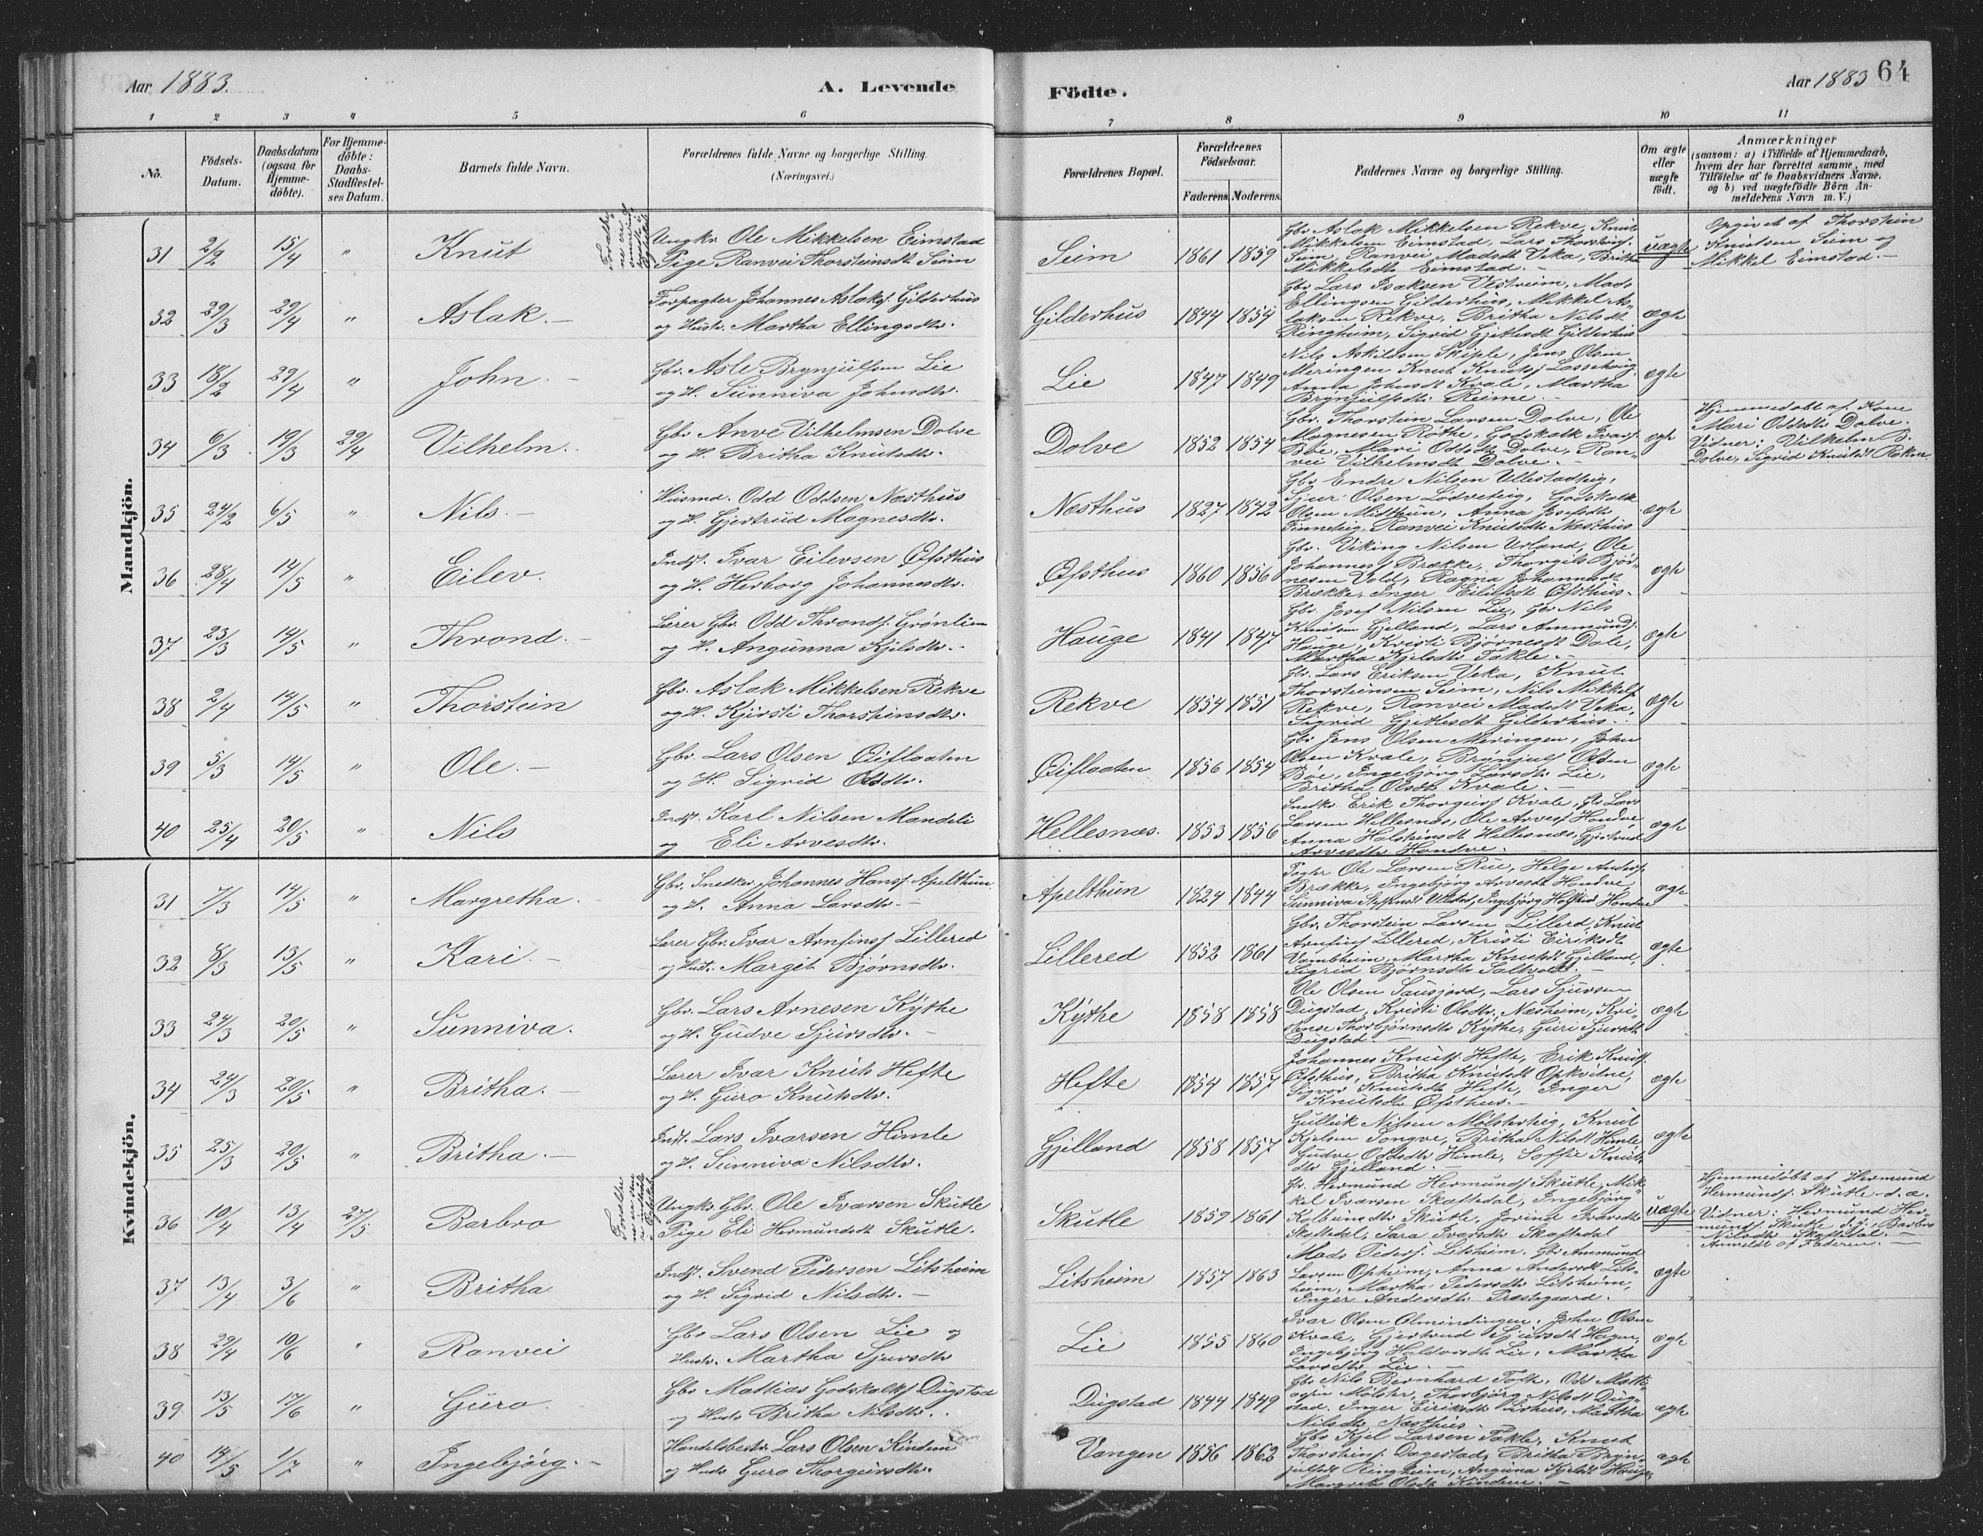 Aar 1883.
A. Levende
Födte.
Aar 1883
64
1 2 3 4 5 6 7 8 9 10 11
No.
Födsels-Datum.
Daabsdatum (ogsaa for Hjemmedöbte).
For Hjemmedöbte: Daabs-Stadfæstelses Datum.
Barnets fulde Navn.
Forældrenes fulde Navne og borgerlige Stilling. (Næringsvei.)
Forældrenes Bopæl.
Forældrenes Födselsaar.
Faderens Moderens
Faddernes Navne og borgerlige Stilling.
Om ægte eller uægte födt.
Anmærkninger
(saasom: a) i Tilfælde af Hjemmedaab, hvem der har forrettet samme, med Tilföielse af to Daabsvidners Navne, og b) ved uægtefödte Börn Anmelderens Navn m. V.)
Mandkjön.
31 2/2 15/4 " Knut
Ungkr. Ole Mikkelsen Eimstad
Pige Ranvei Thorsteinsdt Seim
Seim 1861 1859
Gbr. Aslak Mikkelsen Rekve, Knut
Mikkelsen Eimstad, Lars Thorsteinsf.
Seim, Ranvei Madsdt Veka, Britha
Mikkelsdt Eimstad. –
uægte
Opgivet af Thorstein
Knutsen Seim og
Mikkel Eimstad. –
32 29/3 29/4 " Aslak. –
Forpagter Johannes Aslaks. Gilderhus
og Hustr. Martha Ellingsdtr.
Gilderhus 1844 1854
Gbr Lars Isaksen Vestreim, Mads
Ellingsen Gilderhus, Mikkel As-
laksen Rekve, Britha Nilsdt
Ringheim, Sigrid Gjetlesdt Gilderhus
ægte
33 18/2 29/4 " John. –
Gbr. Asle Brynjulfsen Lie
og H. Sunniva Johnsdtr.
Lie 1847 1849
Nils Askildsen Skiple, Jens Olsen
Meringen Knut Knuts.
Anna Johnsdt Kvale, Martha
Brynjulfsdtr Reime. –
ægte
34 6/3 19/3 29/4 Vilhelm.
Gbr Anve Vilhelmsen Dolve
og H. Britha Knutsdtr.
Dolve 1852 1854
Gbr. Thorstein Larsen Dolve, Ole
Magnesen Rothe, Godskalk Ivars.
Bøe, Mari Oddsdt Dolve, Ran-
vei Vilhelmsdt Dolve. –
ægte
Hjemmedöbt af Kone
Mari Oddsdt Dolve.
Vidner: Vilhelm B.
Dolve, Sigrid Knutsdt
35 24/2 6/5 " Nils. –
Husmd. Odd Oddsen Næsthus
og H. Gjertrud Magnesdtr.
Næsthus 1827 1842
Gbr Endre Nilsen Ullestadteig,
Sjur Olsen Lødveteig, Godskalk
Olsen Midthun, Anna
Ranvei Knutsdtr Næsthus
ægte
36 28/4 14/5 " Eilev.
Indst. Ivar Eilevsen Øfsthus
og H. Herborg Johannesdtr.
Øfsthus 1860 1856
Gbr. Viking Nilsen Urland, Ole
Johannes Brække, Thorgils Bjør-
nesen Vold, Ragna Johannesdt
Brække, Inger Eilefsdt Øfsthus.
ægte
37 23/3 14/5 " Thrond. –
Lærer Gbr. Odd Thronds. Grønlien
og H. Angunna Kjelsdtr. –
Hauge 1841 1847
Gbr. Josef Nilsen Lie, Gbr Nils
Knutsen Gjelland, Lars Ammunds.
Hauge, Kristi Bjørnesdt Dale,
Martha Kjelsdtr Tokle. –
ægte
38 2/4 14/5 " Thorstein
Gbr. Aslak Mikkelsen Rekve
og H. Kjersti Thorsteinsdtr.
Rekve 1854 1851
Gbr. Lars Eriksen Veka, Knut
Thorsteinsen Seim, Nils Mikkels.
Rekve, Ranvei Madsdt Veka,
Sigrid Gjetlesdt Gilderhus. –
ægte
39 5/3 14/5 " Ole. –
Gbr. Lars Olsen Eifloaten
og H. Sigrid Olsdtr.
Eifloaten 1856 1854
Gbr. Jens Olsen Meringen, John
Olsen Kvale, Brynjulf Olsen
Bøe, Ingebjørg Larsdtr Lie,
Britha Olsdt Kvale. –
ægte
40 25/4 20/5 " Nils
Indst. Karl Nilsen Mandeli
og Eli Arvesdtr.
Hellesnæs. 1853 1856
Snedkr Erik Thorgeirs. Kvale, Gbr Lars
Larsen Hellesnæs, Ole Arves. Hondve
Anna Holsteinsdt Hellesnæs, Gjertrud
Arvesdtr Hondve.
ægte
Kvindekjön.
31 7/3 14/5 " Margretha.
Gbr. Snedker, Johannes Hans. Apelthun
og H. Anna Larsdtr. –
Apelthun 1824 1844
Foged Ole Larsen Rue, Helge Anders.
Brække, Ingebjørg Arvesdt Hondve
Sunniva Steffensdt Ullestad, Ingebjørg Hondve
ægte
32 8/3 13/5 " Kari. –
Lærer Gbr. Ivar Arnfins. Lillered
og Hust. Margit Bjørnsdtr.
Lillered 1852 1861
Gbr. Thorstein Larsen Lillered, Knut
Arnfins. Lillered, Kristi Eiriksdt
Vambheim, Martha Knutsdt Gjelland,
Sigrid Bjørnsdt Saltvold. –
ægte
33 24/3 20/5 " Sunniva.
Gbr. Lars Arnesen Kythe
og H. Gudve Sjursdtr. –
Kythe 1858 1858
Ole Olsen Sausjord, Lars Sjursen
Dugstad, Kristi Olsdtr, Næsheim, Kri-
stense Thorbjørnsdtr Kythe, Guri Sjursdt
Dugstad. –
ægte
34 24/3 20/5 " Britha. –
Lærer Ivar Knuts Hefte
og H. Guro Knutsdtr.
Hefte 1854 1857
Johannes Knuts. Hefte, Erik Knuts.
Øfsthus, Britha Knutsdt Opkvitne,
Sigvor Knutsdt Hefte, Inger
Knutsdt Øfsthus. –
ægte
35 25/3 20/5 " Britha. –
Indst. Lars Ivarsen Himle
og H. Sunniva Nilsdtr.
Gjelland 1858 1857
Gulleik Nilsen Mølsterteig, Knut
Kjelsen Songve, Britha Nilsdt Himle
Gudve Oddsdt Himle, Soffie Knuts-
dtr Gjelland. –
ægte
36 10/4 13/4 27/5 Barbro
Ungkr. Gbr. Ole Ivarsen Skutle
Pige Eli Hermundsdt Skutle.
Skutle 1859 1861
Gbr. Hermund Hermunds. Skutle, Mik-
kel Ivarsen Skaftedal, Ingebjørg
Kolbeinsdt Skutle, Jorind Ivarsdt
Skaftedal, Sara Ivarsdtr Skaftedal
uægte
Hjemmedöbt af Hermund
Hermunds. Skutle s. a.
Vidner: Hermund Her-
munds. Skutle s. s., Barbro
Nilsdtr Skaftedal. –
Anmeldt af Faderen. –
37 13/4 3/6 " Britha
Indst. Svend Pedersen Litsheim
og H. Sigrid Nilsdtr. –
Litsheim 1857 1863
Mads Peders. Litsheim, Gbr Ammund
Larsen Opheim, Anna Andersdt Lits-
heim, Martha Pedersdt Litsheim,
Inger Andersdtr Præstegaard. –
ægte
38 29/4 10/6 " Ranvei
Gbr Lars Olsen Lie og
Hustr. Martha Sjursdtr
Lie 1855 1860
Ivar Olsen Olmendingen, John Olsen
Kvale, Gjertrud Sjursdt Hagen,
Ingebjørg Haldorsdt Lie, Martha
Larsdtr Lie. –
ægte
39 13/5 17/6 " Guro.
Gbr Mattias Godskalks. Dugstad
og Hustr Britha Nilsdtr.
Dugstad 1844 1849
Gbr Nils Bernhard Tolte, Ods
Mølster, Thorbjørg Nilsdt Dug-
stad, Inger Eiriksdt, Martha
Nilsdtr Næsthus
ægte
40 14/5 1/7 " Ingebjørg. –
Handelsbestyr Lars Olsen Kindem
og Hustr Guro Thorgeirsdtr.
Vangen 1856 1862
Gbr Kjel Larsen Tokle, Knud
Thorsteins. Dagestad, Britha Bryn-
julfsdt Ringheim, Anguna Kjelsdt Hauge,
Margrete Olsdt Kindem. –
ægte